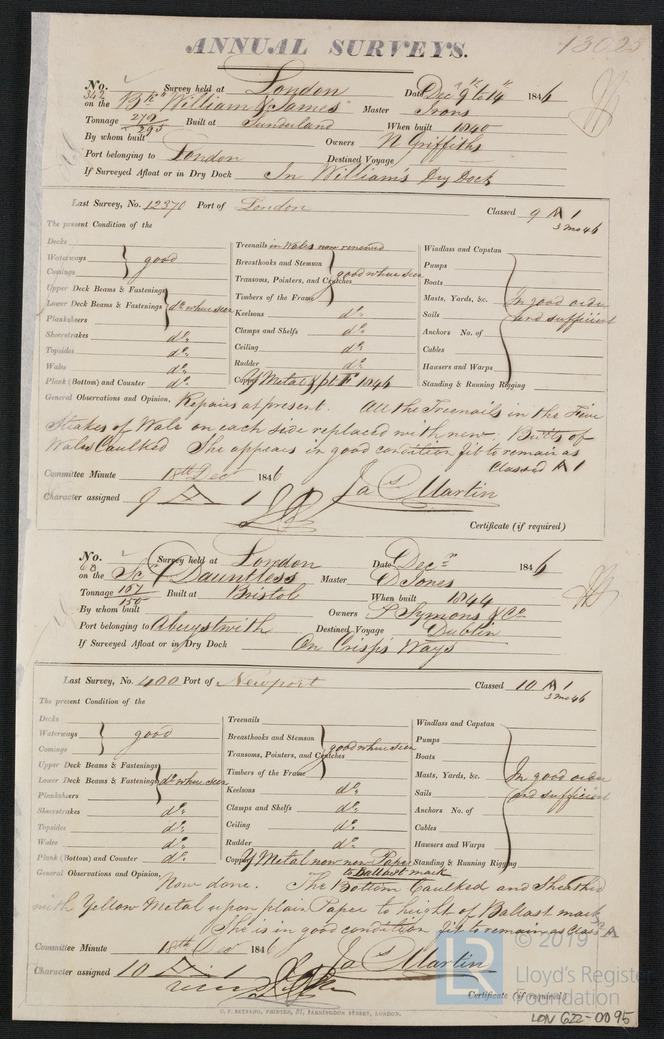 ANNUAL SURVEYS.
13025
No. 342 Survey held at London Date Dec 9th to 14th 1846
on the Bk "William & James" Master Irons
Tonnage 279/295 Built at Sunderland When built 1840
By whom built Owners N Griffiths
Port belonging to London Destined Voyage
If Surveyed Afloat or in Dry Dock In William's Dry Dock
Last Survey, No. 12370 Port of London Classed 9 A 1
3 mo 46
The present Condition of the
Decks
Waterways good
Comings
Upper Deck Beams & Fastenings
Lower Deck Beams & Fastenings do where seen
Planksheers
Sheerstrakes do
Topsides do
Wales do
Plank (Bottom) and Counter do
Treenails in Wales now renewed
Breasthooks and Stemson
Transoms, Pointers, and Crutches good where seen
Timbers of the Frame
Keelsons do
Clamps and Shelfs do
Ceiling do
Rudder do
Copper Y Metal 1846
Windlass and Capstan
Pumps
Boats
Masts, Yards, &c. In good order
Sails and sufficient
Anchors No. of
Cables
Hausers and Warps
Standing & Running Rigging
General Observations and Opinion, Repairs at present. All the Treenails in the Five
Strakes of Wale on each side replaced with new. Butts of
Wales Caulked She appears in good condition fit to remain as
Classed A 1
Committee Minute 18th Decr 1846
Character assigned 9 A 1 Jas Martin
Certificate (if required)
No. 60 Survey held at London Date Decr 1846
on the Scr "Dauntless Master D Jones
Tonnage 107/130 Built at Bristol When built 1844
By whom built Owners P Symons & Co
Port belonging to Aberystwith Destined Voyage Dublin
If Surveyed Afloat or in Dry Dock On Crisp's Ways
Last Survey, No. 400 Port of Newport Classed 10 A 1
3 mo 46
The present Condition of the
Decks
Waterways good
Comings
Upper Deck Beams & Fastenings
Lower Deck Beams & Fastenings do where seen
Planksheers
Sheerstrakes do
Topsides do
Wales do
Plank (Bottom) and Counter do
Treenails
Breasthooks and Stemson
Transoms, Pointers, and Crutches good where seen
Timbers of the Frame
Keelsons do
Clamps and Shelfs do
Ceiling do
Rudder do
Copper Y Metal now on Paper
to Ballast mark
Windlass and Capstan
Pumps
Boats
Masts, Yards, &c. In good order
Sails and sufficient
Anchors No. of
Cables
Hausers and Warps
Standing & Running Rigging
General Observations and Opinion, Now done. The Bottom Caulked and Sheathed
with Yellow Metal upon plain Paper to height of Ballast mark
She is in good condition fit to remain as Classd A
Committee Minute 18th Decr 1846
Character assigned 10 A 1 Jas Martin
Certificate (if required)
C. F. SEYFANG, PRINTER, 57, FARRINGDON STREET, LONDON.
LR © 2019
Lloyd's Register
Foundation
LON 622-0095